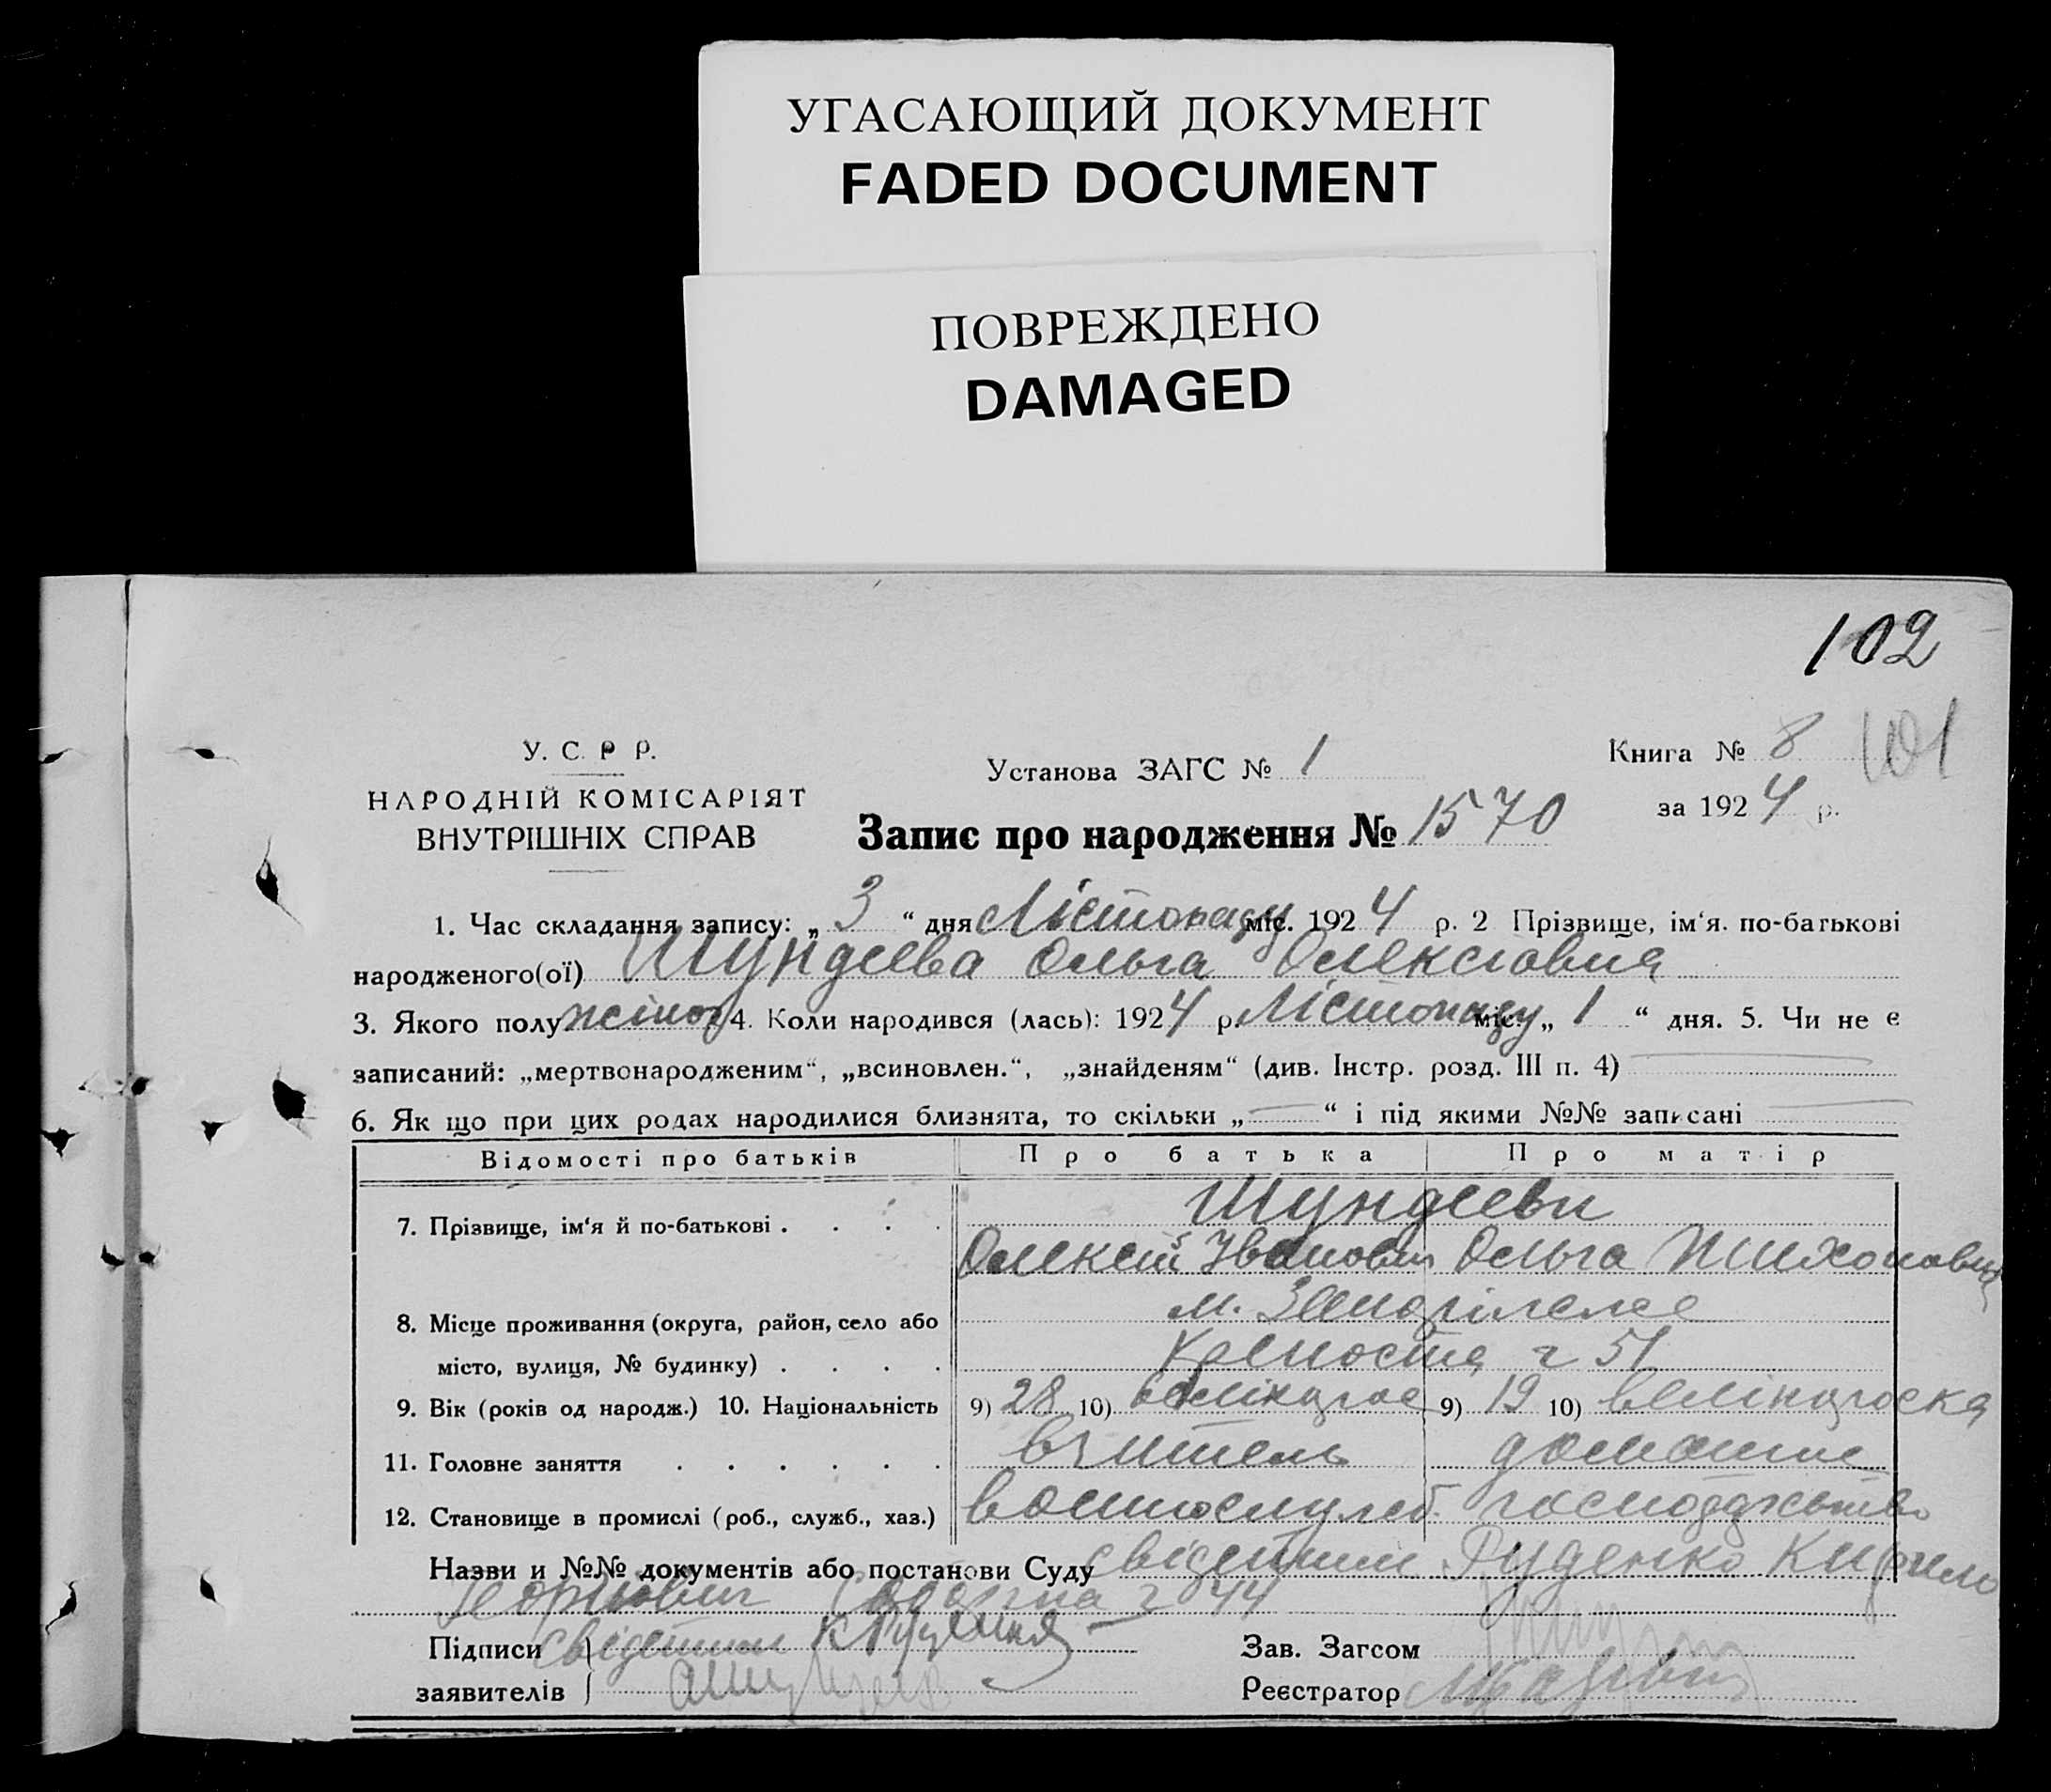 УГАСАЮЩИЙ ДОКУМЕНТ
FADED DOCUMENT
ПОВРЕЖДЕНО
DAMAGED
102
У. С. Р Р.
НАРОДНІЙ КОМІСАРІЯТ
ВНУТРІШНІХ СПРАВ
Установа ЗАГС № 1
Книга № 8 101
за 1924 р.
Запис про народження № 1570
1. Час складання запису: „ 3 “ дня Лістопаду міс. 1924 р. 2 Прізвище, ім‘я. по-батькові
народженого(ої) Шундєева Ольга Олексіовна
3. Якого полу жіноч 4. Коли народився (лась): 1924 р. Лістопаду міс. „ 1 “ дня. 5. Чи не є
записаний: „мертвонародженим“, „всиновлен.“, „знайденям“ (див. Інстр. розд. III п. 4)
6. Як що при цих родах народилися близнята, то скільки „ — “ і під якими №№ записані —
Відомості про батьків Про батька Про матір
7. Прізвище, ім‘я й по-батькові . . . . Шундєеви
Олексій Іванович Ольга Тихоновна
8. Місце проживання (округа, район, село або м.
місто, вулиця, № будинку) . . . . 51
9. Вік (років од народж.) 10. Національність 9) 28 10) 9) 19 10)
11. Головне заняття . . . . . . вчитель домашне
12. Становище в промислі (роб., служб., хаз.)
Назви и №№ документів або постанови Суду Руденко Кирило
44
Підписи
заявителів
Зав. Загсом
Реєстратор